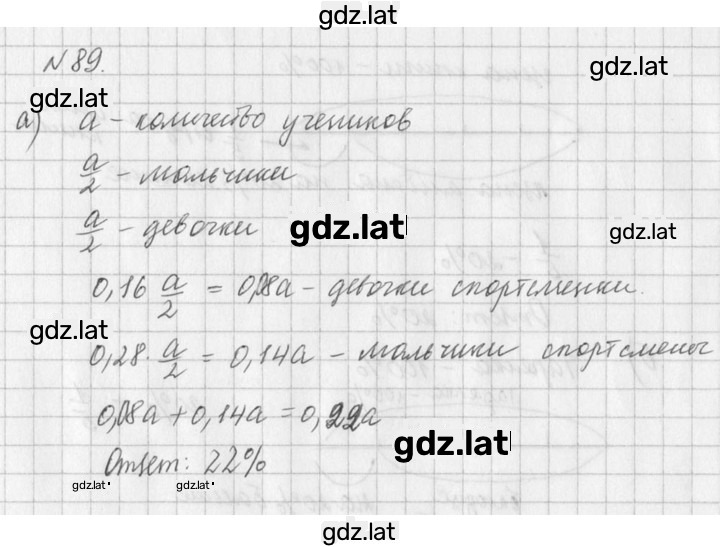 gdz.lat
№ 89.
gdz.lat
gdz.lat
а) а - количество учеников
a/2 - мальчики
a/2 - девочки
gdz.lat
gdz.lat
0,16 a/2 = 0,08а - девочки спортсменки.
gdz.lat
0,28 · a/2 = 0,14а - мальчики спортсмены
0,08а + 0,14а = 0,22а
gdz.lat
Ответ: 22%
gdz.lat
gdz.lat
gdz.lat